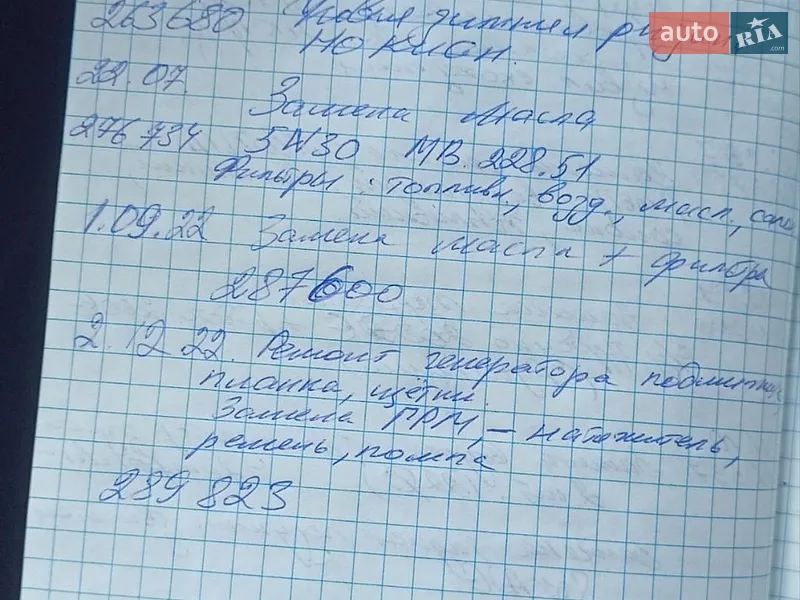 263680 зимняя
НОКИАН.
auto RIA .com
22.07.
Замена масла
276 734 5W30 MB. 228.51
Фильтры: топливн., возд., масл.,
1.09.22 Замена масла + фильтра
287600
2.12.22. Ремонт генератора
планка, щётки.
Замена ГРМ, – натяжитель,
ремень, помпа
289 823